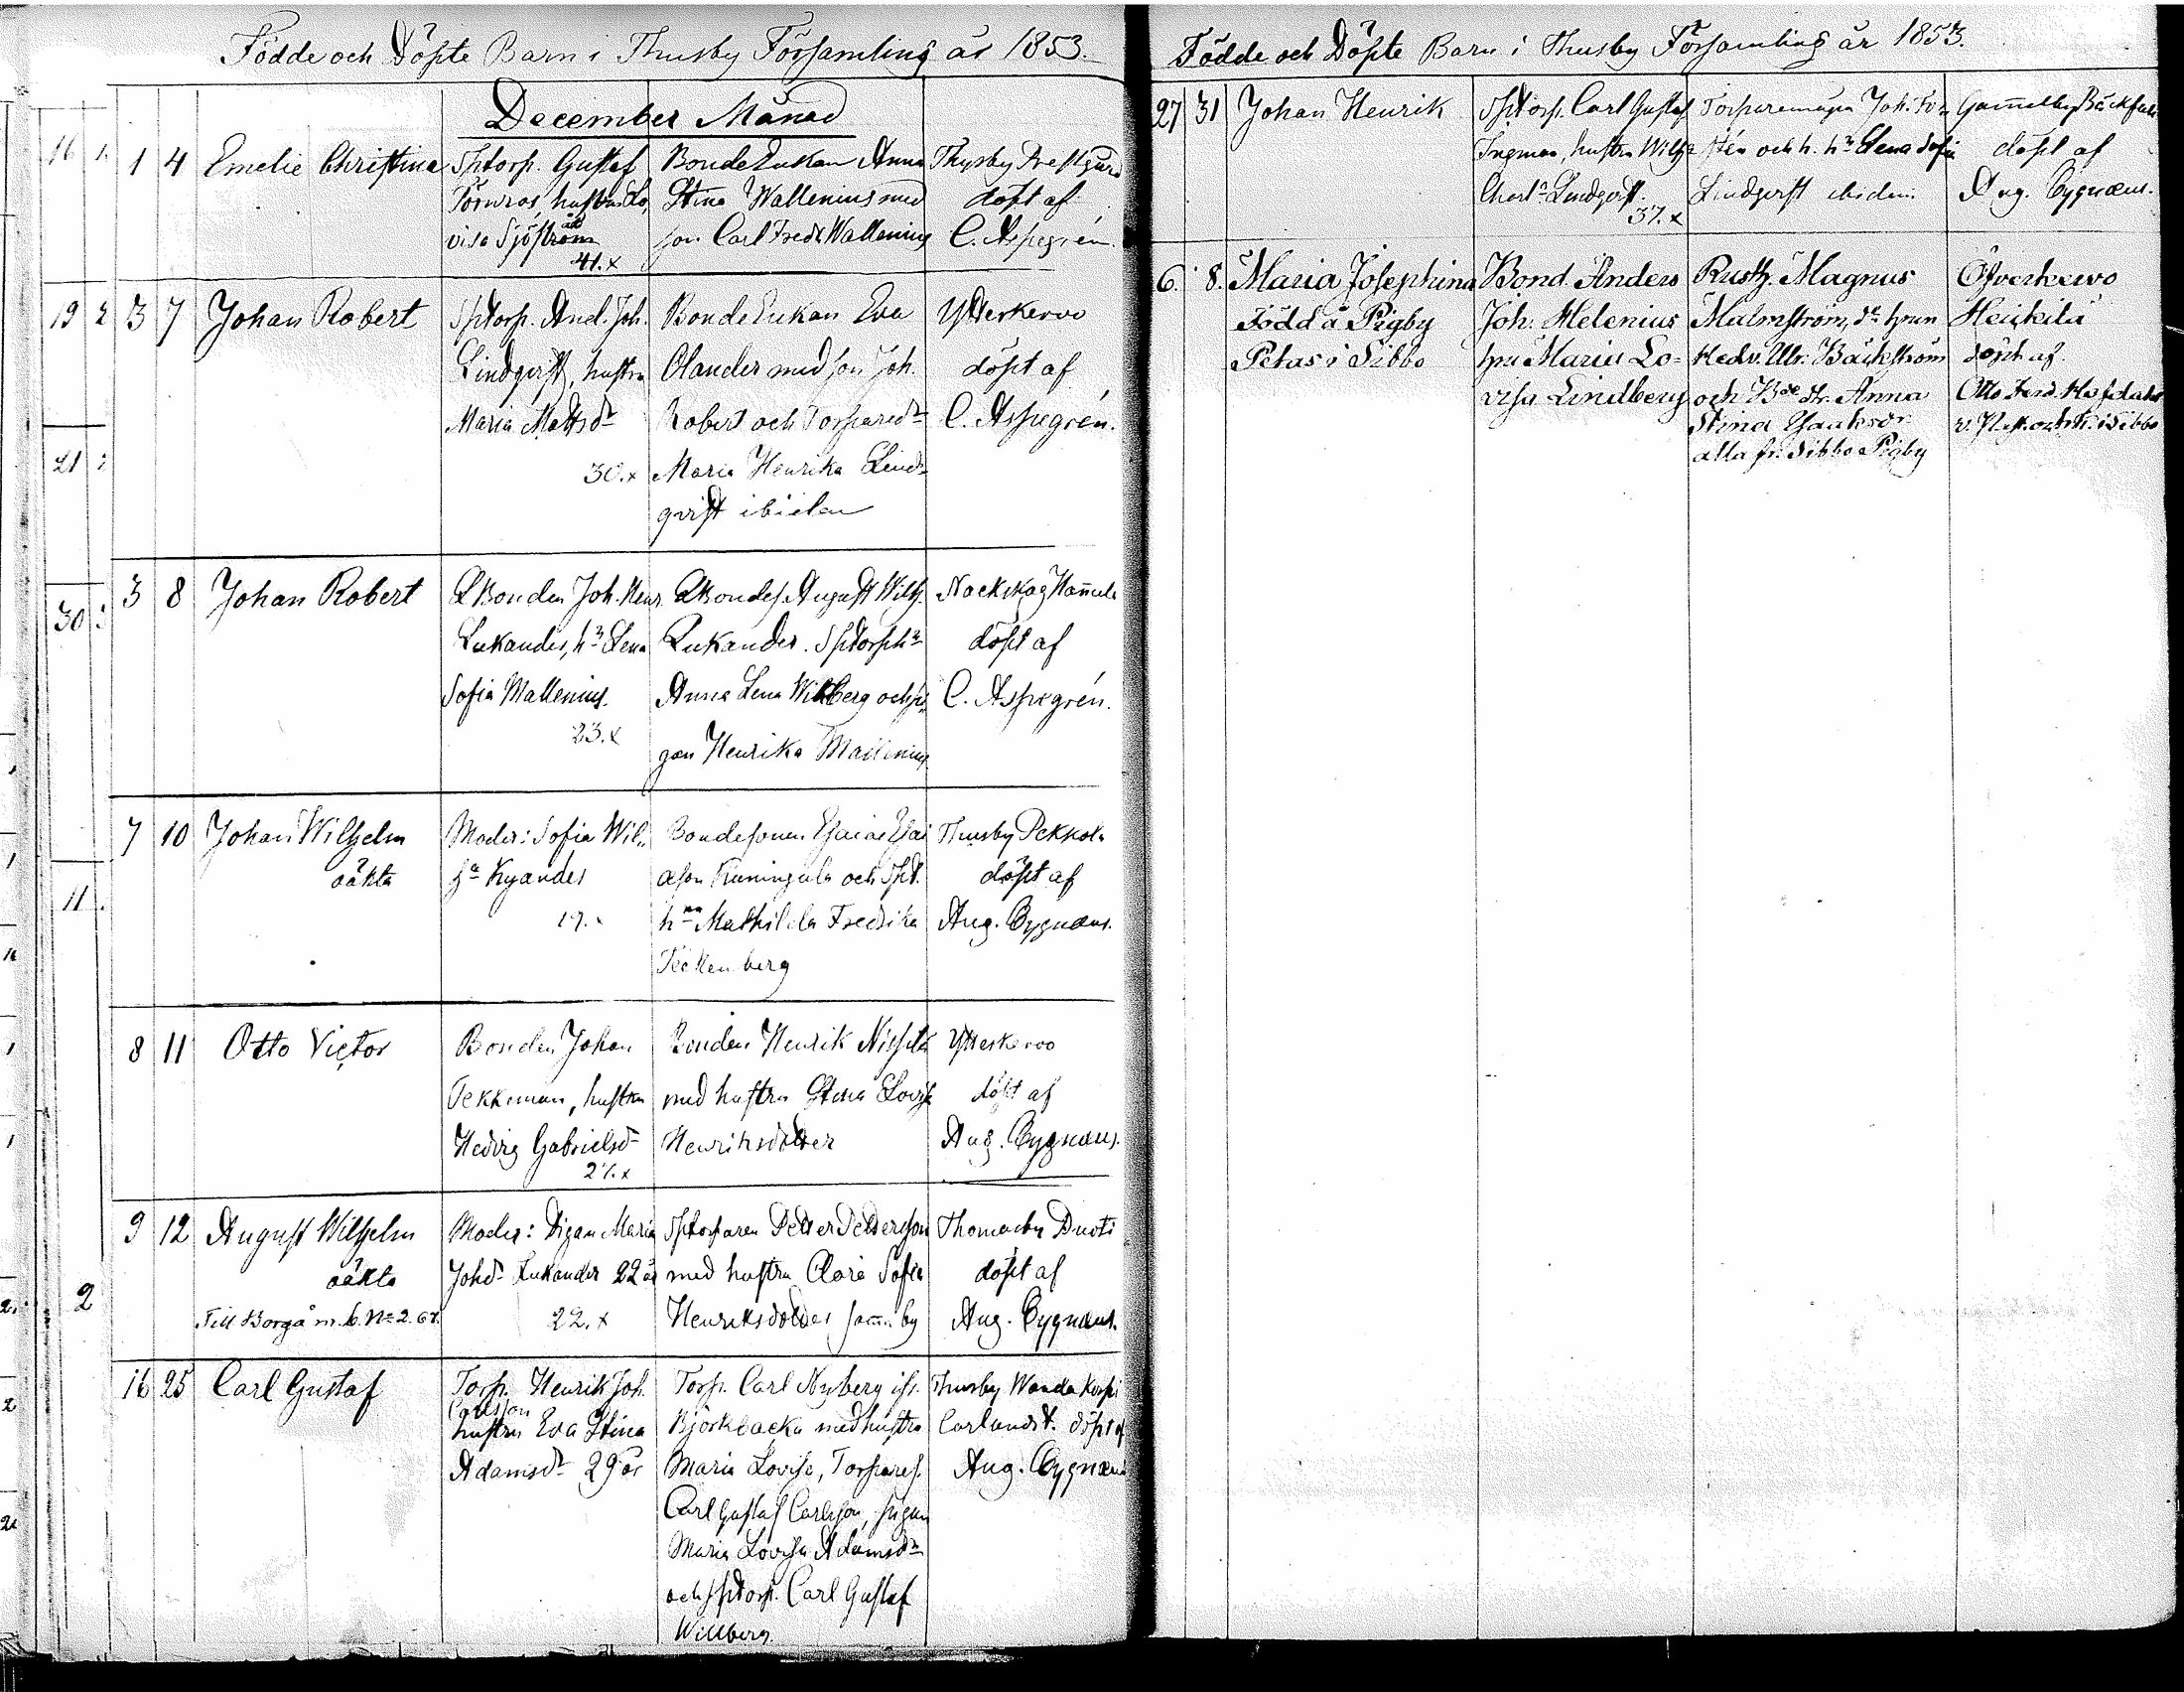 Födde och Döpte Barn i Thusby Församling år 1853.
December Månad
1 4 Emelie Christina
Sptorp. Gustaf
Törnros, hustru Lo,
visa Sjöström
41.x
Bonde Enkan Anna
Stina Wallenius med
son Carl Fredr Wallenius
Thusby Prestgård
döpt af
C. Aspegrén.
3 7 Johan Robert
Sptorp. And. Joh.
Lindqvist, hustru
Maria Mattsdr
30.x
Bonde Enkan Eva
Olander med son Joh.
Robert och Torparedr
Maria Henrika Lind-
qvist ibidem
Ytterkervo
döpt af
C. Aspegrén.
3 8 Johan Robert
Bonden Joh. Henr.
Lukander, h. Lena
Sofia Mallenius.
23.x
August Wilh.
Lukander. Sptorph
Anna Lena Wikberg och pi-
gan Henrika Mallenius
Nackskog Hannula
döpt af
C. Aspegrén.
7 10 Johan Wilhelm
oäkta
Moder: Sofia Wil-
Kyander
19.
Bondesonen Esaias Esai
ason Kuningala och Spt.
hna Mathilda Fredrika
Tecklenberg
Thusby Pekkola
döpt af
Aug. Cygnæus.
8 11 Otto Victor
Bonden Johan
Pekkonen, hustru
Hedvig Gabrielsdr
27.x
Bonden Henrik Nissilä
med hustru Stina Lovisa
Henriksdotter
Ytterkervo
döpt af
Aug. Cygnæus.
9 12 August Wilhelm
oäkta
Till Borgå m. b. No 2. 67.
Moder: Pigan Maria
Johdr Lukander 22 år
22.x
Sptorparen Petter Pettersson
med hustru Clara Sofia
Henriksdotter samma by
Thomasby Duoti
döpt af
Aug. Cygnæus.
16 25 Carl Gustaf
Torp. Henrik Joh.
Carlsson
hustru Eva Stina
Adamsdr 29 år
Torp. Carl Nyberg ifr.
Björkbacka med hustru
Maria Lovisa, Torpares.
Carl Gustaf Carlsson, pigan
Maria Lovisa Adamsdr
och Sptorp. Carl Gustaf
Willberg.
Thusby Wanda Korpi
Carlundst. döpt af
Aug. Cygnæus
Födde och Döpte Barn i Thusby Församling år 1853.
27 31 Johan Henrik
Sptorp. Carl Gustaf
Ingman, hustru Wilha
Charl. Lindqvist.
37.x
Torparemågen Joh. Fo-
rstén och h. h. Lena Sofia
Lindqvist ibidem.
Gammelby Bäckfall
döpt af
Aug. Cygnæus.
6. 8. Maria Josephina
Född å Pigby
Petas i Sibbo
Bond. Anders
Joh. Helenius
hru Maria Lo-
visa Lindberg
Rusth. Magnus
Malmström, ds hrun
Hedv. Ulr. Bäckström
och Bde dr. Anna
Stina Isaksdr.
alla fr. Sibbo Pigby
Öfverkervo
Heickilä
döpt af
Otto Ferd.
i Sibbo